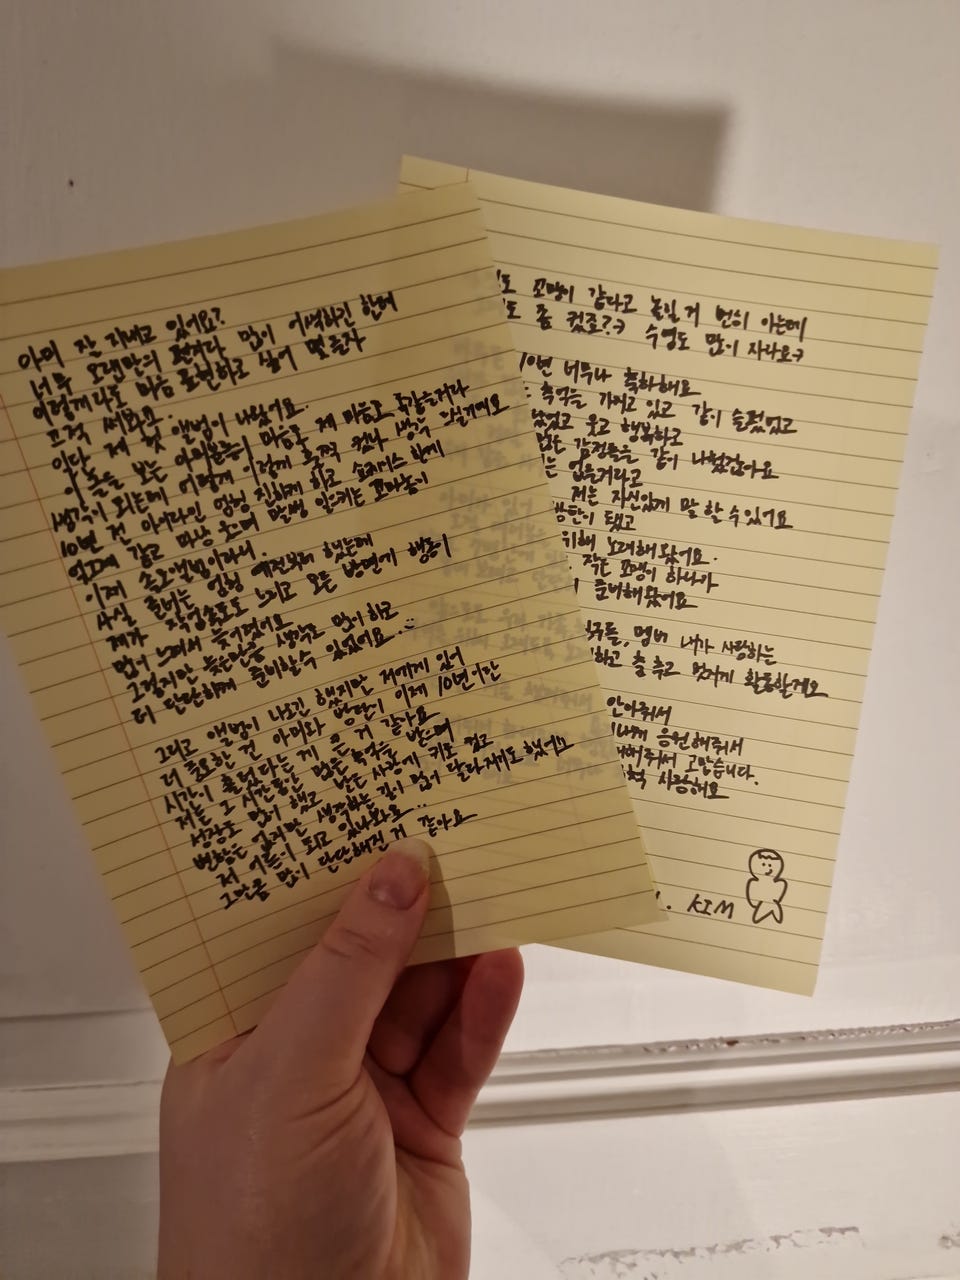 아미 잘 지내고 있어요?
너무 오랜만의 편지라 많이 어색하긴 한데
이렇게라도 마음 표현하고 싶어 몇글자
끄적 써봐요.
일단 제 첫 앨범이 나왔어요.
이 둘을 보는 아미분들이 마음도 제 마음도 똑같을거라
생각이 되는데 어떻게 이렇게 훅 컸나 생각 드실거예요
10년 전 아이라인 엄청 진하게 하고 쇼케이스 함께
엊그제 같고 마냥 웃으며 말썽 일으키는 꼬마놈이
이제 솔로앨범이라니.
사실 준비는 엄청 예전부터 했는데
제가 작업속도도 느리고 모든 방면에 행동이
많이 느려서 늦어졌어요
그렇지만 늦은만큼 생각도 많이 하고
더 단단하게 준비할수 있었어요
그리고 앨범이 나오긴 했지만 저에게 있어
더 중요한 건 아미와 방탄이 이제 10년이란
시간이 흘렀다는 게 큰 거 같아요
저는 그 시간동안 많은 추억을 쌓으며
성장도 많이 했고 받은 사랑에 키도 컸고
변함은 없지만 생각하는 길이 많이 달라지기도 했어요
저 어른이 되고 있나봐요
그만큼 많이 단단해진 거 같아요
도 꼬맹이 같다고 놀릴 거 뻔히 아는데
도 좀 컸죠?? 수염도 많이 자라요
10년 너무나 축하해요
추억을 가지고 있고 같이 슬펐었고
웃고 행복하고
감정들을 같이 나눴잖아요
는 없을거라고
저는 자신있게 말 할 수 있어요
방탄이 됐고
위해 노래해왔어요.
작은 꼬맹이 하나가
준비해왔어요
멤버 내가 사랑하는
하고 춤 추고 멋지게 활동할게요
안아줘서
응원해줘서
해줘서 고맙습니다.
사랑해요
. KIM